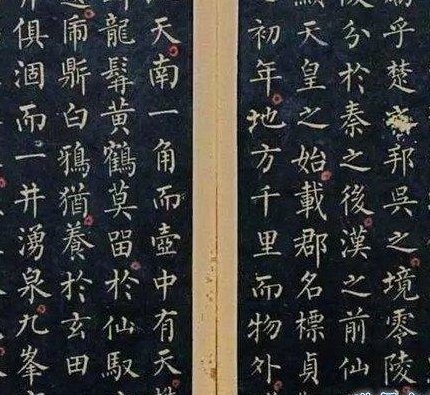 乎楚邦吳之境零陵
分於秦之後漢之前仙
天皇之始載郡名標貞
之初年地方千里而物外
天南一角而壺中有天
龍髯黃鶴莫留於仙馭
鼎白鴉猶養於玄田
俱涸而一井湧泉九峯